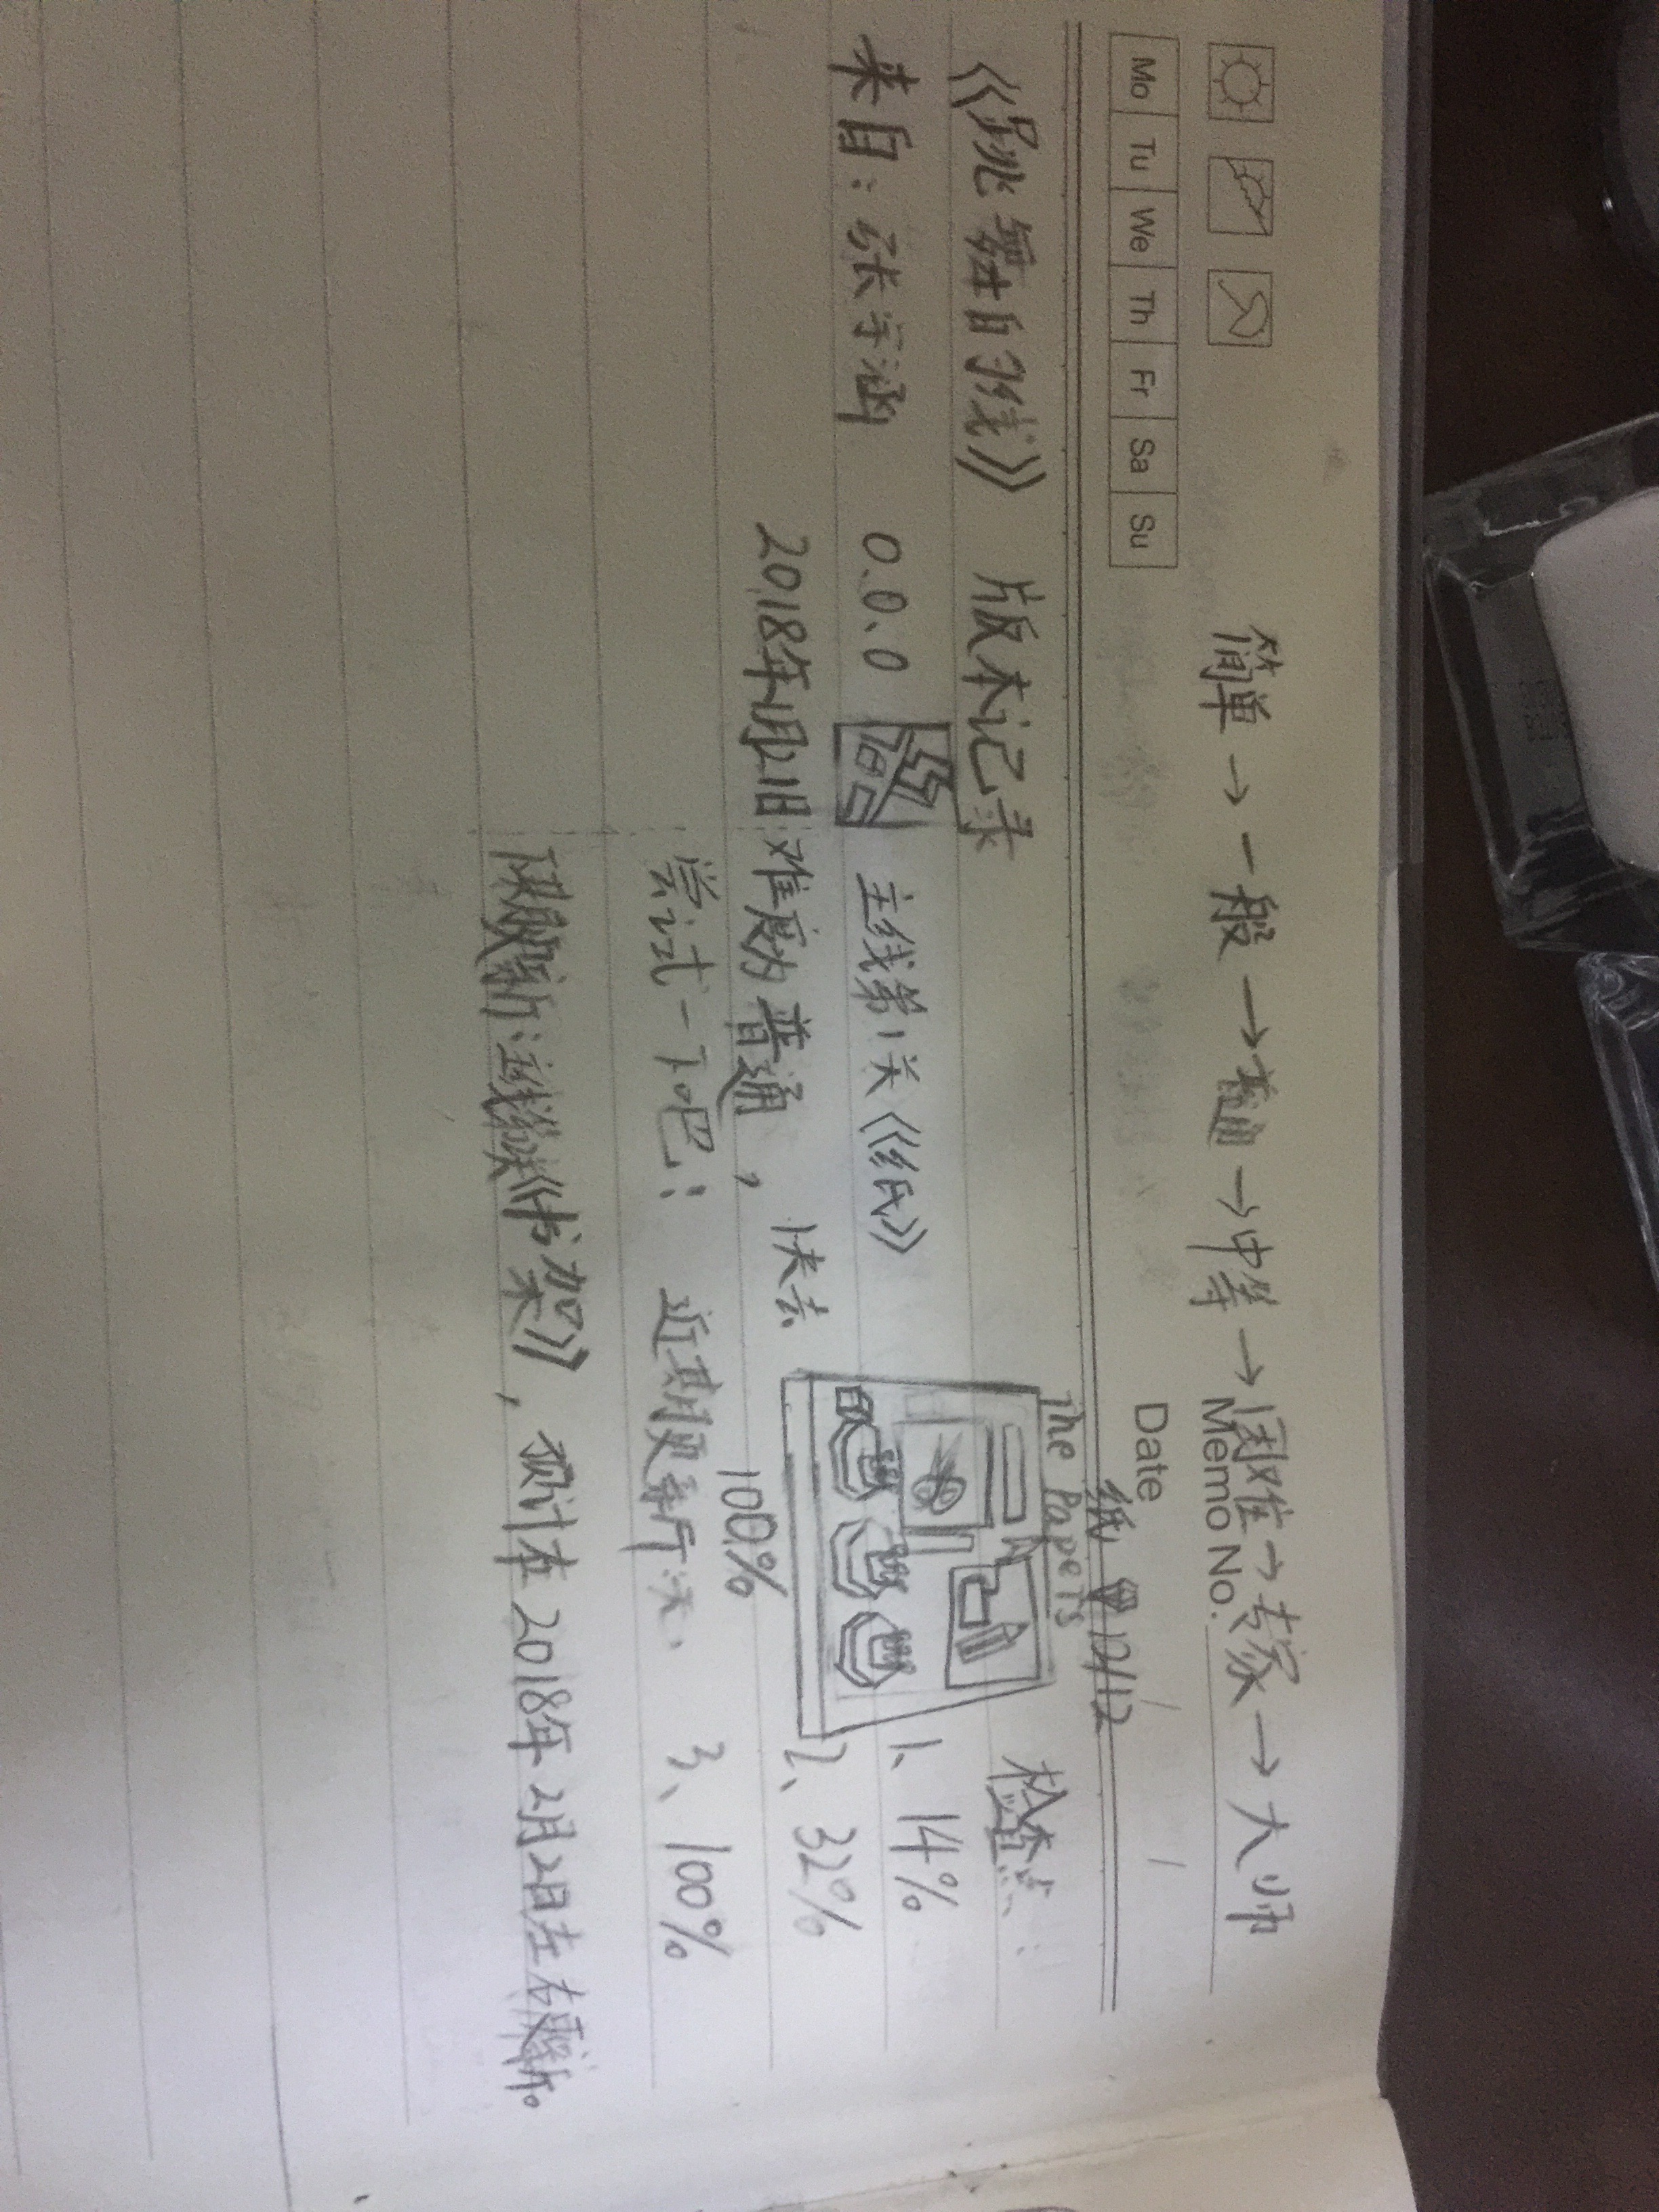 简单→一般→普通→中等→困难→专家→大师
Memo No.
Mo Tu We Th Fr Sa Su
Date
纸 12/12
《跳舞的线》 版本记录
The Papers
检查点:
来自:张宇涵 0.0.0 主线第1关《纸》
1、14%
2018年1月21日:难度为普通,快去
2、32%
尝试一下吧!
100%
3、100%
近期更新:
下次更新:主线第2关《书架》,预计在2018年2月2日左右更新。